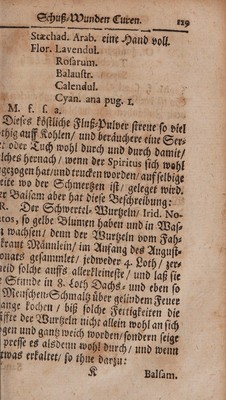 Schuß-Wunden Curen. 129
Stæchad. Arab. eine Hand voll.
Flor. Lavendul.
Rosarum.
Balaustr.
Calendul.
Cyan. ana pug. 1.
M. f. s. a.
Dieses köstliche Fluß-Pulver streue so viel
thig auff Kohlen / und beräuchere eine Ser-
oder Tuch wohl durch und durch damit /
lches hernach / wenn der Spiritus sich wohl
gezogen hat / und trucken worden / auff selbige
eite wo der Schmertzen ist / geleget wird.
er Balsam aber hat diese Beschreibung:
R. Der Schwertel-Wurtzeln / Irid. No-
tos, so gelbe Blumen haben und in Was-
wachsen / denn der Wurtzeln vom Fah-
kraut Männlein / im Anfang des August-
onats gesammlet / jedweder 4. Loth / zer-
neid solche auffs allerkleineste / und laß sie
e Stunde in 8. Loth Dachs- und eben so
Menschen-Schmaltz über gelindem Feuer
ange kochen / biß solche Fettigkeiten die
äffte der Wurtzeln nicht allein wohl an sich
ogen und gantz weich worden / sondern seige
presse es alsdenn wohl durch / und wenn
twas erkaltet / so thue darzu:
K Balsam.